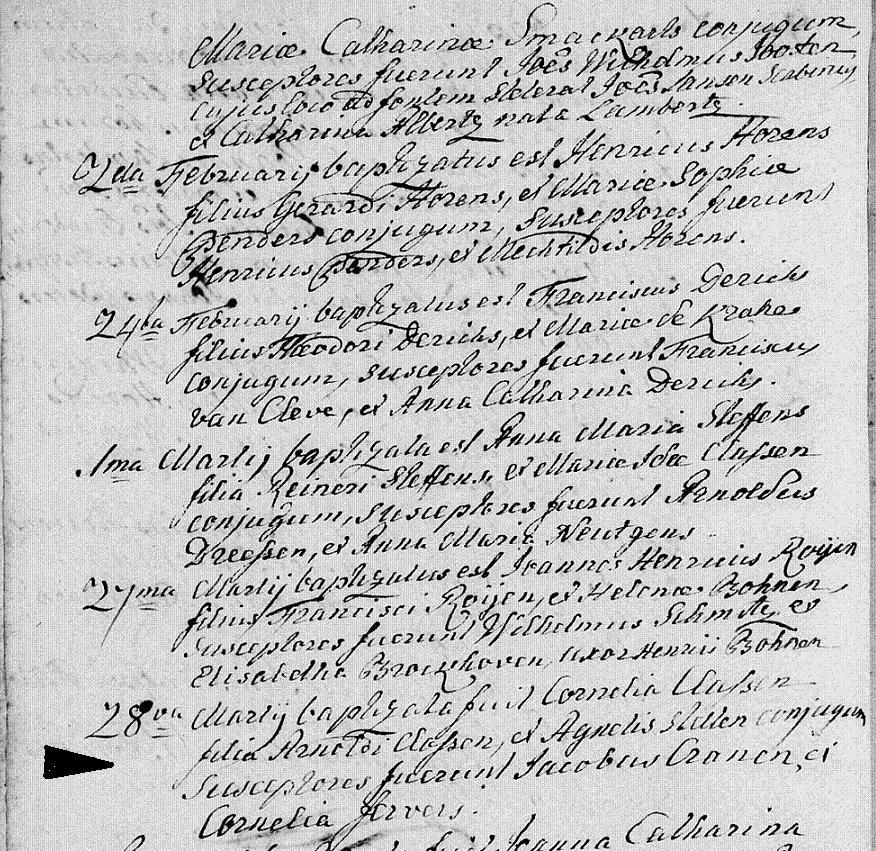 Mariæ Catharinæ Smackarts conjugum,
Susceptores fuerunt Joēs Wilhelmus Joosten
cujus loco ad fontem steterat Joēs Jansen Scabinus
et Catharina Albertz nata Lambertz.
2da Februarij baptizatus est Henricus Horens
filius Gerardi Horens, et Mariæ Sophiæ
Penders conjugum, susceptores fuerunt
Henricus Penders, et Mechtildis Horens.
24ta Februarij baptizatus est Franciscus Derichs
filius Theodori Derichs, et Mariæ de Krahe
conjugum, susceptores fuerunt Franciscus
van Cleve, et Anna Catharina Derichs.
1ma Martij baptizata est Anna Maria Steffens
filia Reineri Steffens, et Mariæ Idæ Classen
conjugum, susceptores fuerunt Arnoldus
Dreessen, et Anna Maria Neutgens
27ma Martij baptizatus est Joannes Henricus Roijen
filius Francisci Roijen, et Helenæ Bohnen,
susceptores fuerunt Wilhelmus Schmitz, et
Elisabetha Brockhoven, uxor Henrij Bohnen
28va Martij baptizata fuit Cornelia Classen
filia Arnoldi Classen, et Agnetis Stellen conjugum
susceptores fuerunt Jacobus Cranen, et
Cornelia Fervers.
fuit Joanna Catharina